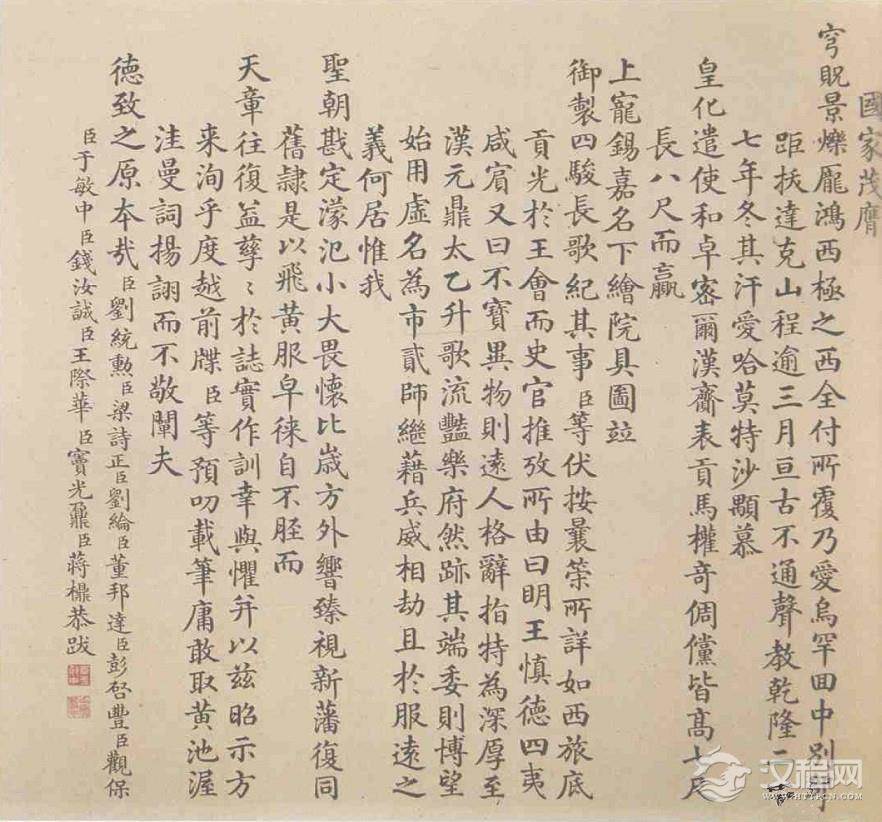 國家茂膺
穹貺景爍厖鴻西極之西全付所覆乃愛烏罕回中別
距拔達克山程逾三月亘古不通聲教乾隆二
七年冬其汗愛哈莫特沙顒慕
皇化遣使和卓密爾漢齎表貢馬權奇倜儻皆高七尺
長八尺而贏
上寵錫嘉名下繪院具圖竝
御製四駿長歌紀其事臣等伏按曩筞所詳如西旅底
貢光於王會而史官推攷所由曰明王慎德四夷
咸賓又曰不寶異物則遠人格辭指特為深厚至
漢元鼎太乙升歌流豔樂府然跡其端委則博望
始用虛名為市貳師繼藉兵威相劫且於服遠之
義何居惟我
聖朝戡定濛汜小大畏懷比歲方外響臻視新藩復同
舊隸是以飛黃服皁徠自不脛而
天章往復益孳〻於誌實作訓幸與懼并以茲昭示方
来洵乎度越前牒臣等預叨載筆庸敢取黃池渥
洼曼詞揚詡而不敬闡夫
德致之原本哉臣劉統勲臣梁詩正臣劉綸臣董邦達臣彭啓豐臣觀保
臣于敏中臣錢汝誠臣王際華臣竇光鼐臣蔣檙恭跋
汉程网
HTTPCN.COM